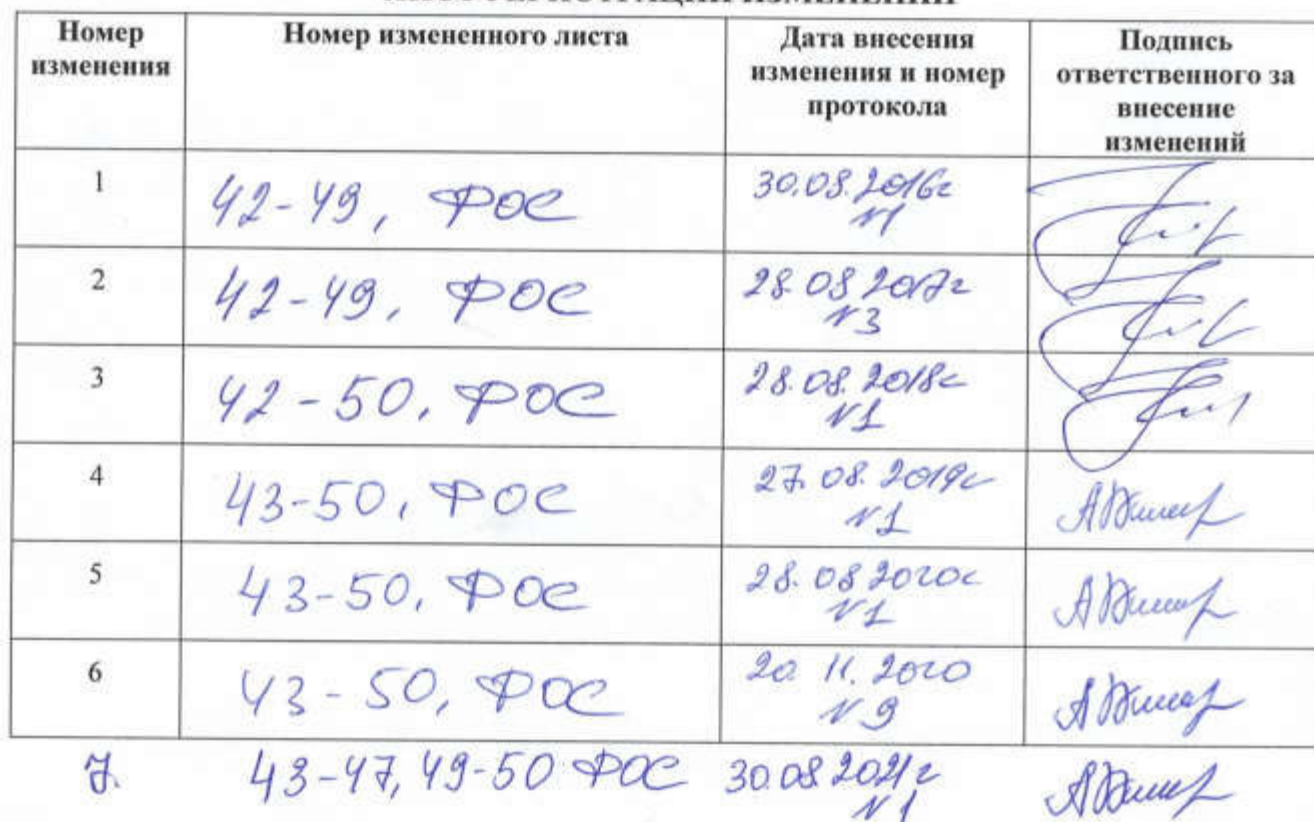 Номер изменения
Номер измененного листа
Дата внесения изменения и номер протокола
Подпись ответственного за внесение изменений
1
42-49, ФОС
30.08.2016г
N1
2
42-49, ФОС
28.08 2017г
N3
3
42-50, ФОС
28.08.2018г
N1
4
43-50, ФОС
27.08.2019г
N1
5
43-50, ФОС
28.08 2020г
N1
6
43-50, ФОС
20.11.2020
N9
7.
43-47, 49-50 ФОС
30.08 2021г
N1